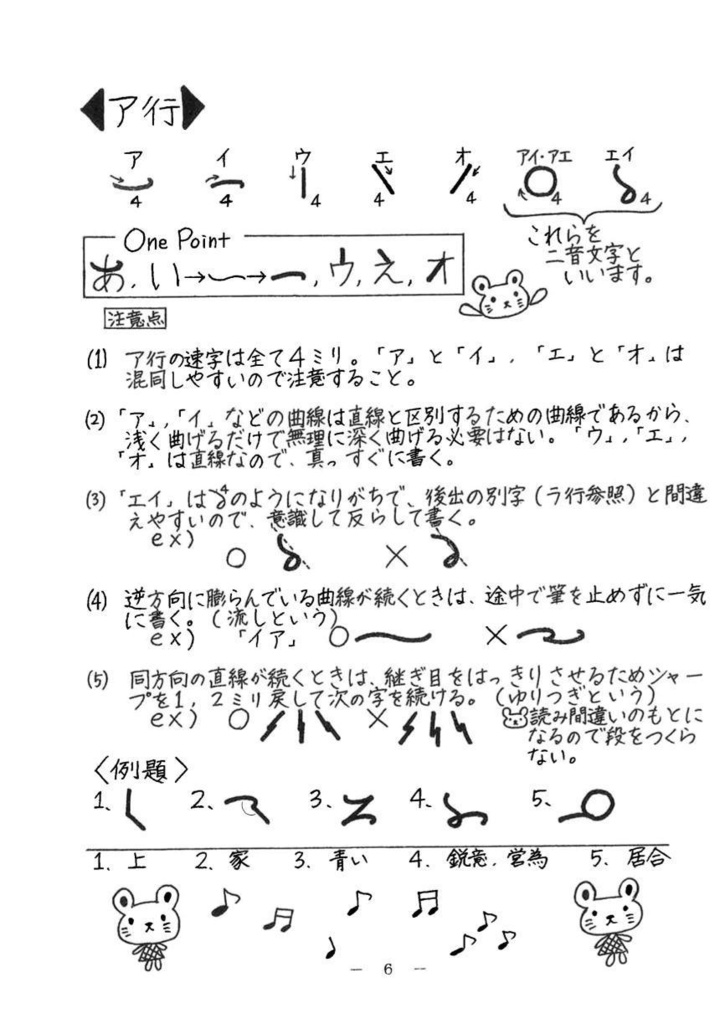 ア行
ア イ ウ エ オ アイ・アエ エイ
4 4 4 4 4 4 4
これらを
二音文字と
いいます。
One Point
あ, い→→, ウ, え, オ
注意点
(1) ア行の速字は全て4ミリ。「ア」と「イ」,「エ」と「オ」は
混同しやすいので注意すること。
(2)「ア」,「イ」などの曲線は直線と区別するための曲線であるから、
浅く曲げるだけで無理に深く曲げる必要はない。「ウ」,「エ」,
「オ」は直線なので、真っすぐに書く。
(3)「エイ」は のようになりがちで、後出の別字(ラ行参照)と間違
えやすいので、意識して反らして書く。
ex) ○ ×
(4) 逆方向に膨らんでいる曲線が続くときは、途中で筆を止めずに一気
に書く。(流しという)
ex) 「イア」 ○ ×
(5) 同方向の直線が続くときは、継ぎ目をはっきりさせるためシャー
プを1,2ミリ戻して次の字を続ける。(ゆりつぎという)
ex) ○ ×
読み間違いのもとに
なるので段をつくら
ない。
〈例題〉
1、 2、 3、 4、 5、
1、上 2、家 3、青い 4、鋭意,営為 5、居合
— 6 —